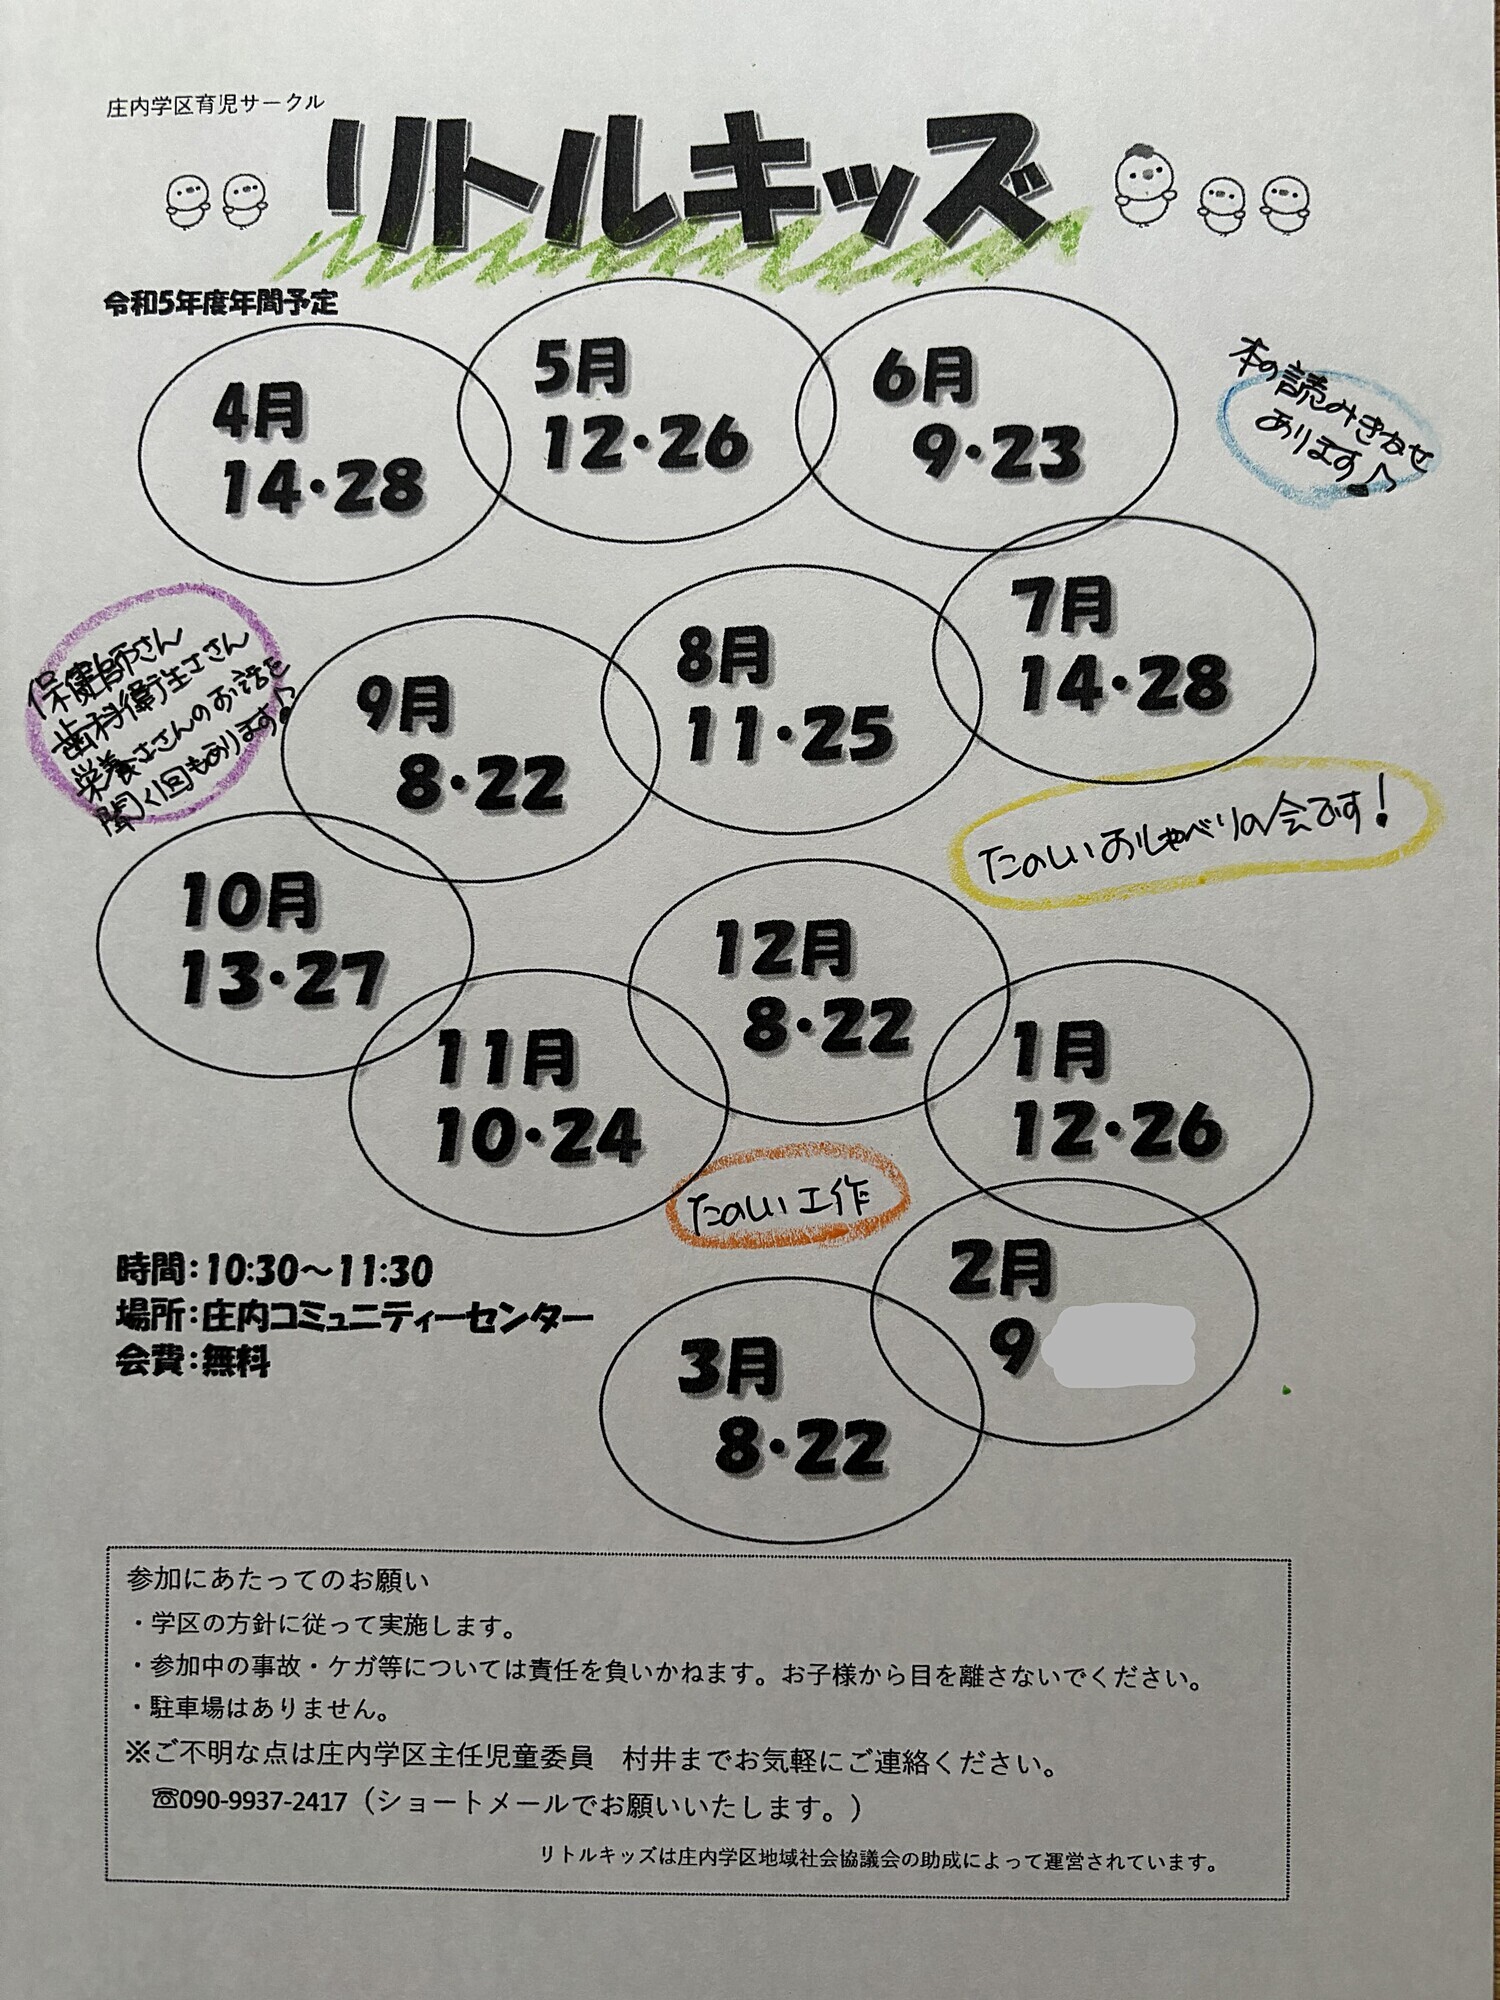 庄内学区育児サークル
リトルキッズ
令和5年度年間予定
4月
14・28
5月
12・26
6月
9・23
本の読みきかせ
あります♪
7月
14・28
8月
11・25
9月
8・22
保健師さん
歯科衛生士さん
栄養士さんのお話を
聞く回もあります♪
たのしいおしゃべりの会です!
10月
13・27
11月
10・24
12月
8・22
1月
12・26
たのしい工作
2月
9
3月
8・22
時間:10:30~11:30
場所:庄内コミュニティーセンター
会費:無料
参加にあたってのお願い
・学区の方針に従って実施します。
・参加中の事故・ケガ等については責任を負いかねます。お子様から目を離さないでください。
・駐車場はありません。
※ご不明な点は庄内学区主任児童委員 村井までお気軽にご連絡ください。
☏090-9937-2417(ショートメールでお願いいたします。)
リトルキッズは庄内学区地域社会協議会の助成によって運営されています。